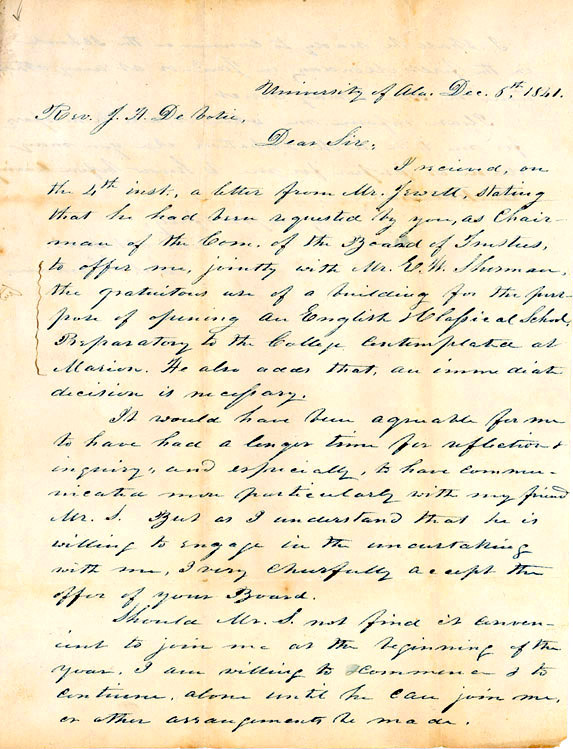 University of Ala. Dec. 8th. 1841.
Rev. J. H. De Votie,
Dear Sir,
I recieved, on
the 4th inst., a letter from Mr. Jewett, stating
that he had been requested by you, as Chair-
man of the Com. of the Board of Trustees,
to offer me, jointly with Mr. E. W. Sherman,
the gratuitous use of a building for the pur-
pose of opening an English & Classical School,
Preparatory to the College contemplated at
Marion. He also adds that, an immediate
decision is necessary.
It would have been agreable for me
to have had a longer time for reflection &
inquiry, and especially, to have commu-
nicated more particularly with my friend
Mr. S. But as I understand that he is
willing to engage in the undertaking
with me, I very cheerfully accept the
offer of your Board.
Should Mr. S. not find it conven-
ient to join me at the beginning of the
year, I am willing to commence & to
continue, alone until he can join me,
or other arrangements be made.